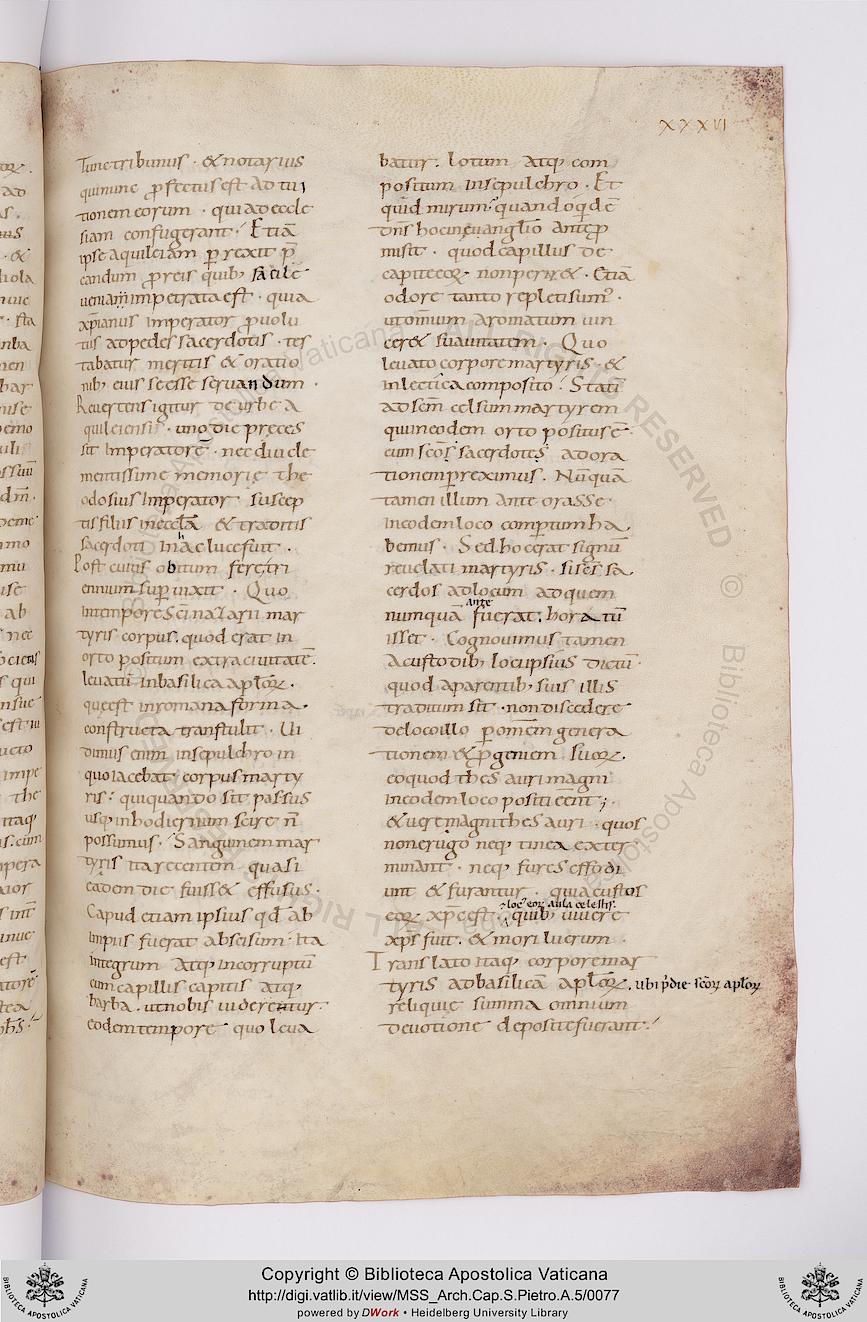 XXXVI
Tunc tribunus · & notarius
qui nunc ꝓfectus est ad tui
tionem eorum · qui ad eccle
siam confugerant · Etiā
ipse aquileiam perrexit p̄
candum ꝓ reis quib; facile
ueniam impetrata est · quia
xp̄ianus imperator ꝓuolu
tus ad pedes sacerdotis · tes
tabatur meritis & oratio
nib; eius se esse seruandum ·
Reuertens igitur de urbe a
quileiensi · uno die preces
sit imperatorē · nec diu cle
mentissime memorię the
odosius Imperator suscep
tis filiis in ęccła & traditis
sacerdoti In hac luce fuit ·
Post cuius obitum fere tri
ennium superuixit · Quo
in tempore sc̄i nazarii mar
tyris corpus. quod erat in
orto positum extra ciuitatē ·
leuatū in basilica apłoꝝ ·
quę est in romana forma ·
constructa transtulit · Ui
dimus enim in sepulchro in
quo iacebat corpus marty
ris · qui quando sit passus
usq; in hodiernum scire n̄
possumus · Sanguinem mar
tyris ita recentem quasi
eadem die fuiss& effusus ·
Capud etiam ipsius qđ ab
impiis fuerat abscisum · Ita
integrum atq; incorruptū
cum capillis capitis atq;
barba · ut nobis uideretur ·
eodem tempore quo leua
batur · lotum atq; com
positum in sepulchro · Et
quid mirum · quandoqdē
dn̄s hoc in euanglio ante ꝓ
misit · quod capillus de
capite eoꝝ non peri& · Etiā
odore tanto repleti sum; ·
ut omnium aromatum uin
cer& suauitatem · Quo
leuato corpore martyris · &
in lectica composito · Statī
ad sc̄m celsum martyrem
qui in eodem orto positus ē ·
cum sc̄o sacerdote adora
tionem preximus · Nūquā
tamen illum ante orasse ·
in eodem loco compertum ha
bemus · Sed hoc erat signū
reuelati martyris · si sc̄s sa
cerdos ad locum ad quem
numquā ante fuerat. horatū
isset · Cognouimus tamen
a custodib; loci ipsius dictū ·
quod a parentib; suis illis
traditum sit · non discedere
de loco illo per omnem genera
tionem & ꝓgeniem suoꝝ ·
eo quod thesauri magni
in eodem loco positi eent ;·
& uere magni thesauri · quos
non erugo neq; tinea exter
minant · neq; fures effodi
unt & furantur · quia custos
eoꝝ xp̄c est · & loc' eoꝝ aula celestis · quib; uiuere
xp̄s fuit · & mori lucrum ·
Translato itaq; corpore mar
tyris ad basilicā apłoꝝ · ubi p'die sc̄oꝝ apłoꝝ
reliquie summa omnium
deuotione deposite fuerant ·
Copyright © Biblioteca Apostolica Vaticana
http://digi.vatlib.it/view/MSS_Arch.Cap.S.Pietro.A.5/0077
powered by DWork • Heidelberg University Library